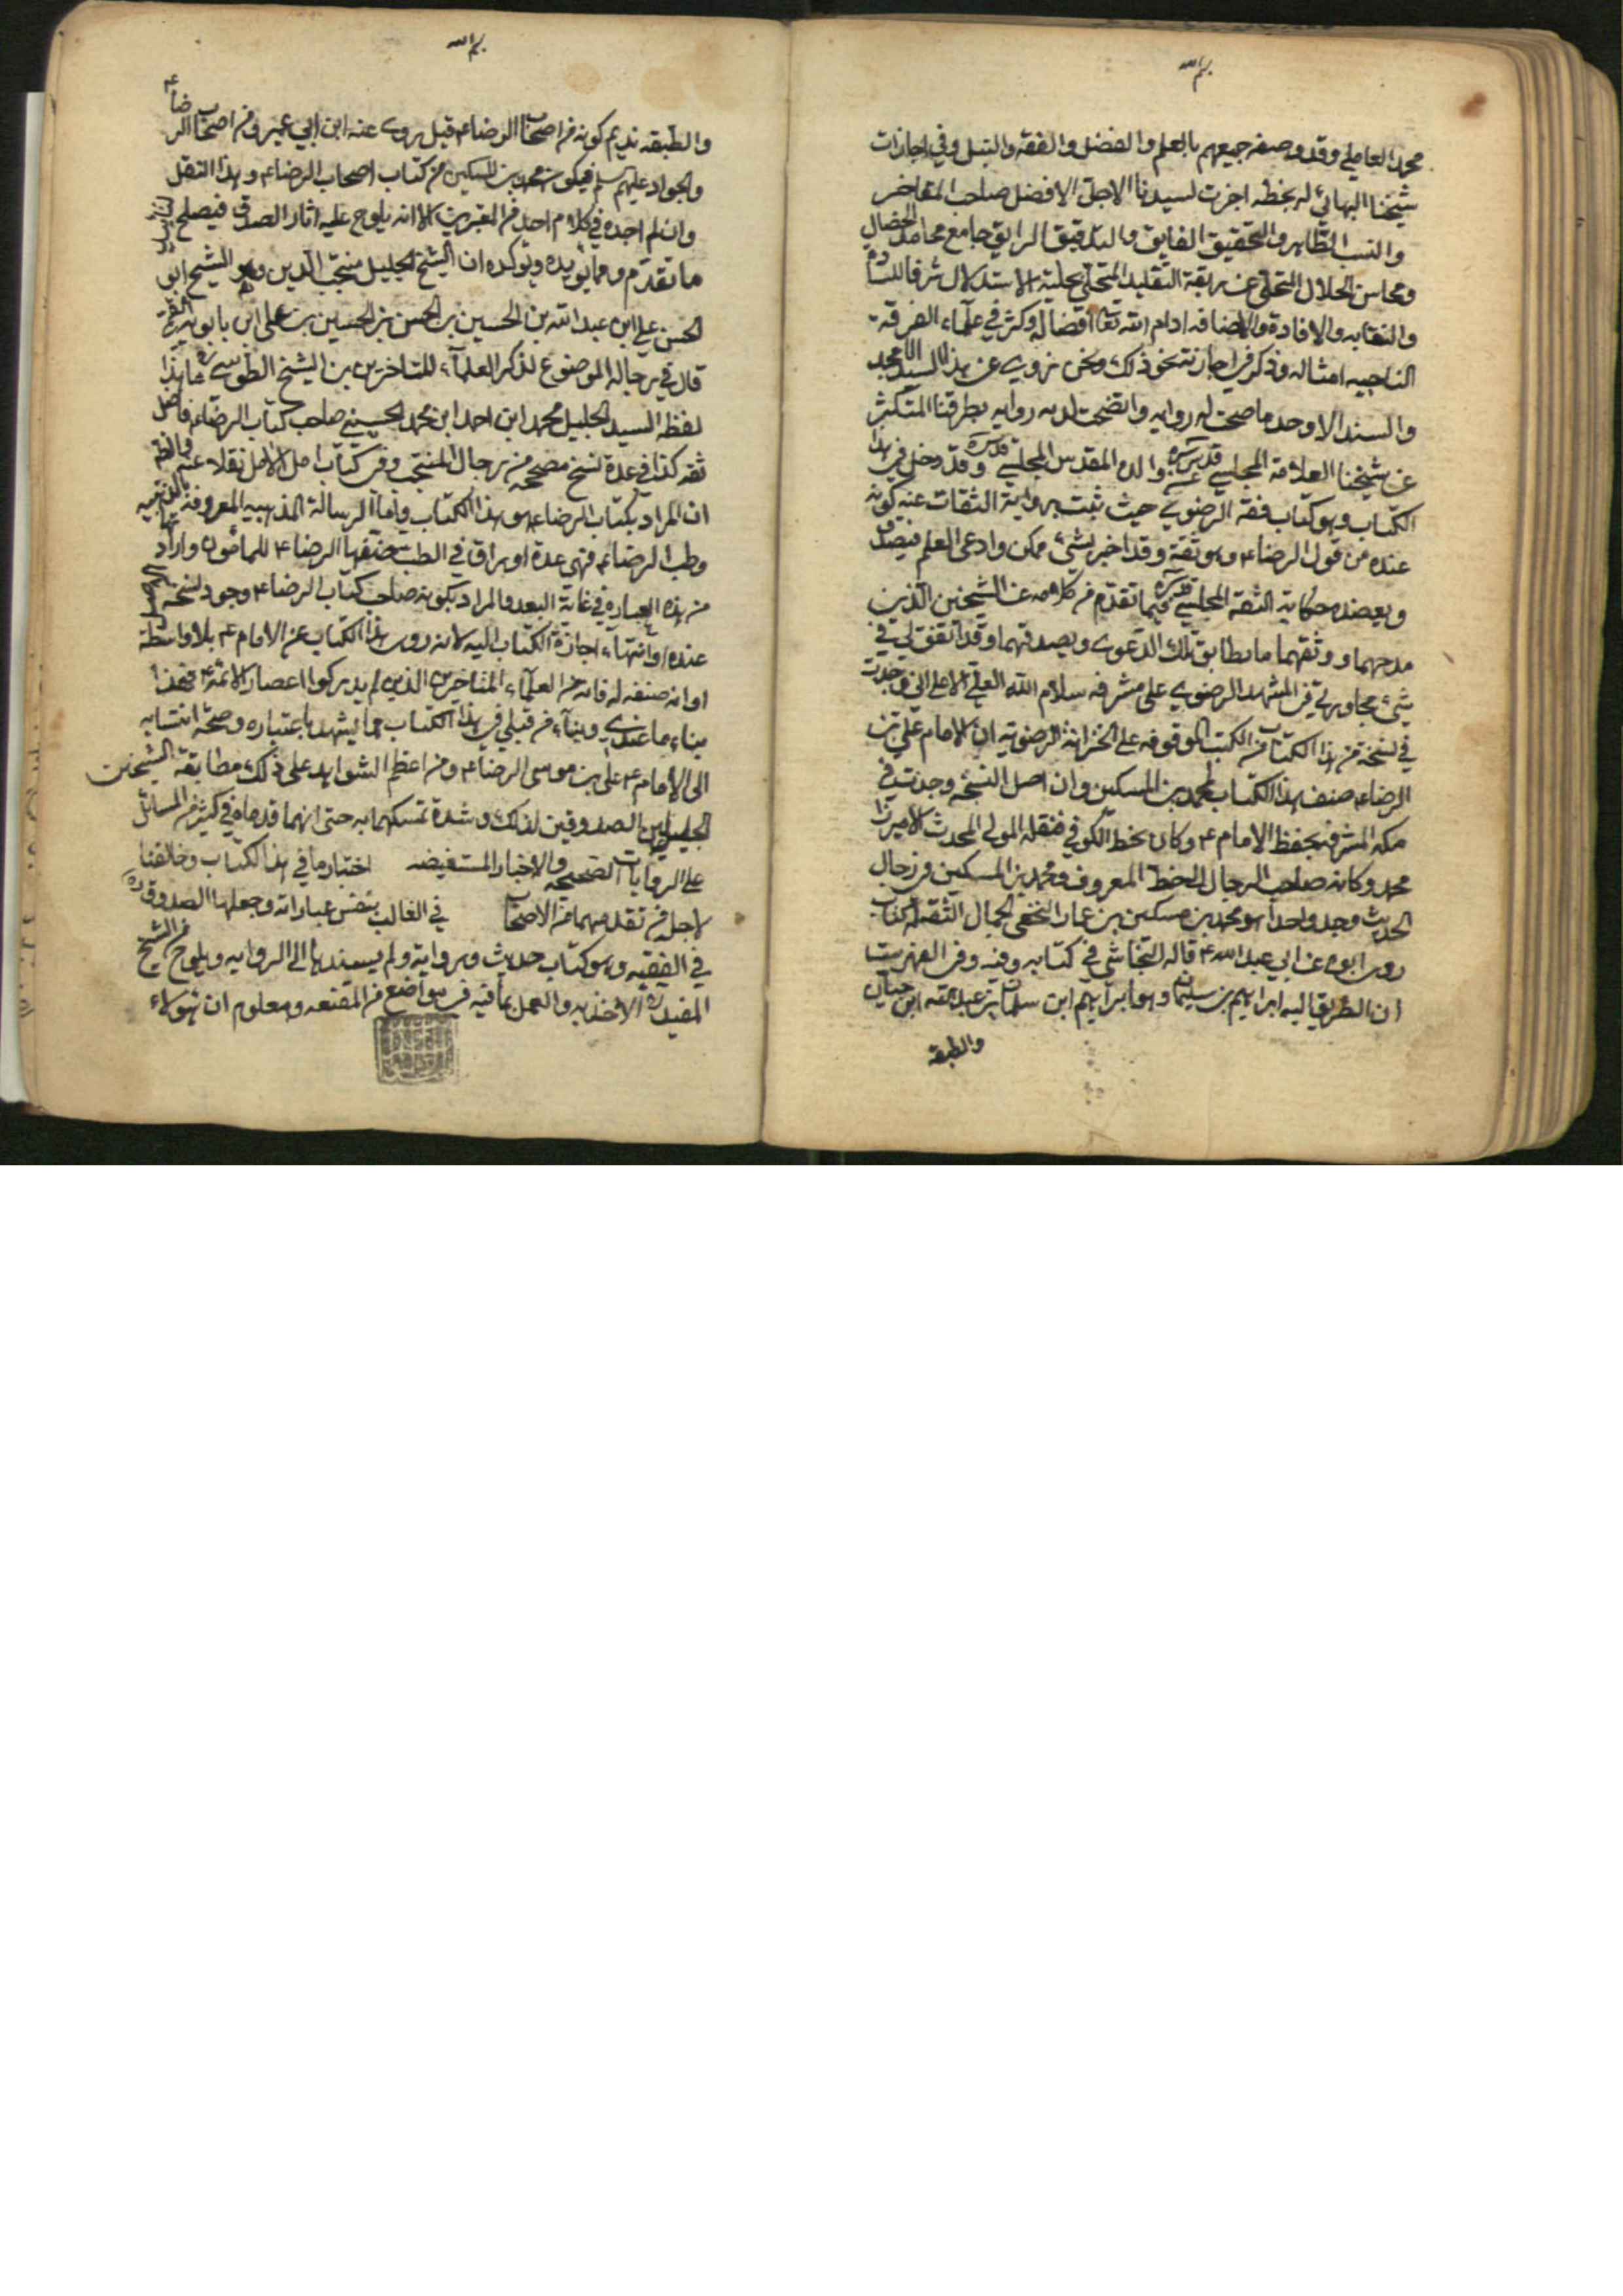 بسم الله
محمد العاملي وقد وصفه جميعهم بالعلم والفضل والفقه والنبل وفي اجازات
شيخنا البهائي له بخطه اجزت لسيدنا الاجل الافضل صاحب المفاخر
والنسب الطاهر والتحقيق الفايق والتدقيق الرايق جامع محامد الخصال
ومحاسن الخلال المتخلي عن ربقة التقليد المتحلي بحلية الاستدلال شرفا للسادة
والنقابه والافادة والاضافه ادام الله تعا افضاله وكثر في علماء الفرقة
الناجيه امثاله وذكر في اجازته نحو ذلك ونحن نروي عن هذا السيد الامجد
والسند الاوحد ما صحت له روايه واتضحت لديه روايه بطرقنا المتكثرة
عن شيخنا العلامة المجلسي قدس سره عن والده المقدس المجلسي قدس سره وقد دخل في هذا
الكتاب وهو كتاب فقه الرضوي حيث ثبت برواية الثقات عنه كونه
عنده من قول الرضا ع وهو ثقة وقد اخبر بشيئ ممكن وادعى العلم فيصدق
ويعضده حكاية الثقة المجلسي قدس سره فيما تقدم من كلامه عن الشيخين الذين
مدحهما ووثقهما ما يطابق تلك الدعوى ويصدقهما وقد اتفق لي في
شيئ مجاورتي في المشهد الرضوي على مشرفه سلام الله العلي الاعلى اني وجدت
في نسخة من هذا الكتاب من الكتب الموقوفه على الخزانة الرضويه ان الامام علي بن
الرضا ع صنف هذا الكتاب لمحمد بن المسكين وان اصل النسخه وجدت في
مكه المشرفه بخط الامام ع وكان بخط الكوفي فنقله المولى المحدث الاميرزا
محمد وكانه صاحب الرجال الخط المعروف ومحمد بن المسكين في رجال
الحديث وجد واحدا هو محمد بن مسكين بن عمار النخعي الجمال الثقة له كتاب
روى ابوه عن ابي عبد الله ع قاله النجاشي في كتابه وفيه وفي الفهرست
ان الطريق اليه ابراهيم بن سليمان وهو ابراهيم ابن سلمان بن عبد الله ابن حيان
والطبقه
بسم الله
والطبقه تديم كونه من اصحاب الرضا ع قيل يروى عنه ابن ابي عمير وهو من اصحاب الرضا ع
والجواد عليهم سلم فيكون محمد بن المسكين من كتاب اصحاب الرضا ع وهذا النقل
وان لم اجده في كلام احد من المعتبرين الا انه يلوح عليه اثار الصدق فيصلح
ما تقدم ومما يؤيده ويؤكده ان الشيخ الجليل منتجب الدين وهو الشيخ ابو
الحسن علي ابن عبد الله بن الحسين بن الحسن بن الحسين بن علي ابن بابويه القمي
قال في رجاله الموضوع لذكر العلماء للمتاخرين بن الشيخ الطوسي ره ما هذا
لفظه السيد الجليل محمد ابن احمد ابن محمد الحسيني صاحب كتاب الرضا ع فاضل
ثقه كذا في عدة نسخ مصححه من رجال المنتجب وفي كتاب امل الامل نقلا عنه والظاهر
ان المراد بكتاب الرضا ع هو هذا الكتاب واما الرسالة المذهبيه المعروفة بالذهبيه
وطب الرضا ع فهي عدة اوراق في الطب صنفها الرضا ع للمامون واراد تها
من هذه العباره في غاية البعد والمراد بكونه صاحب كتاب الرضا ع وجود نسخة
عنده او انتهاء اجازة الكتاب اليه لانه روى هذا الكتاب عن الامام ع بلا واسطة
او انه صنفه له فانه من العلماء المتاخرين الذين لم يدركوا اعصار الائمة فهذا
بناء ما عندي وبناء من قبلي في هذا الكتاب مما يشهد باعتباره وصحة انتسابه
الى الامام ع علي بن موسى الرضا ع ومن اعظم الشواهد على ذلك مطابقة الشيخين
الجليلين الصدوقين لذلك وشدة تمسكهما به حتى انهما قدماه في كثير من المسائل
على الروايات الصحيحه والاخبار المستفيضه اختيار ما في هذا الكتاب وخالفنا
لاجله من تقدمهما من الاصحاب في الغالب بنفس عباراته وجعلها الصدوق ره
في الفقيه وهو كتاب حديث ورواية ولم يسندها الى الروايه ويلوح من الشيخ
المفيد ره الاخذ به والعمل بما فيه في مواضع من المقنعه ومعلوم ان هؤلاء